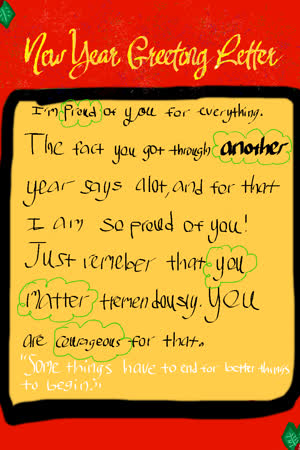 New Year Greeting Letter
I'm proud of you for everything.
The fact you got through another
year says alot, and for that
I am so proud of you!
Just remeber that you
matter tremendously. You
are courageous for that.
"Some things have to end for better things
to begin."